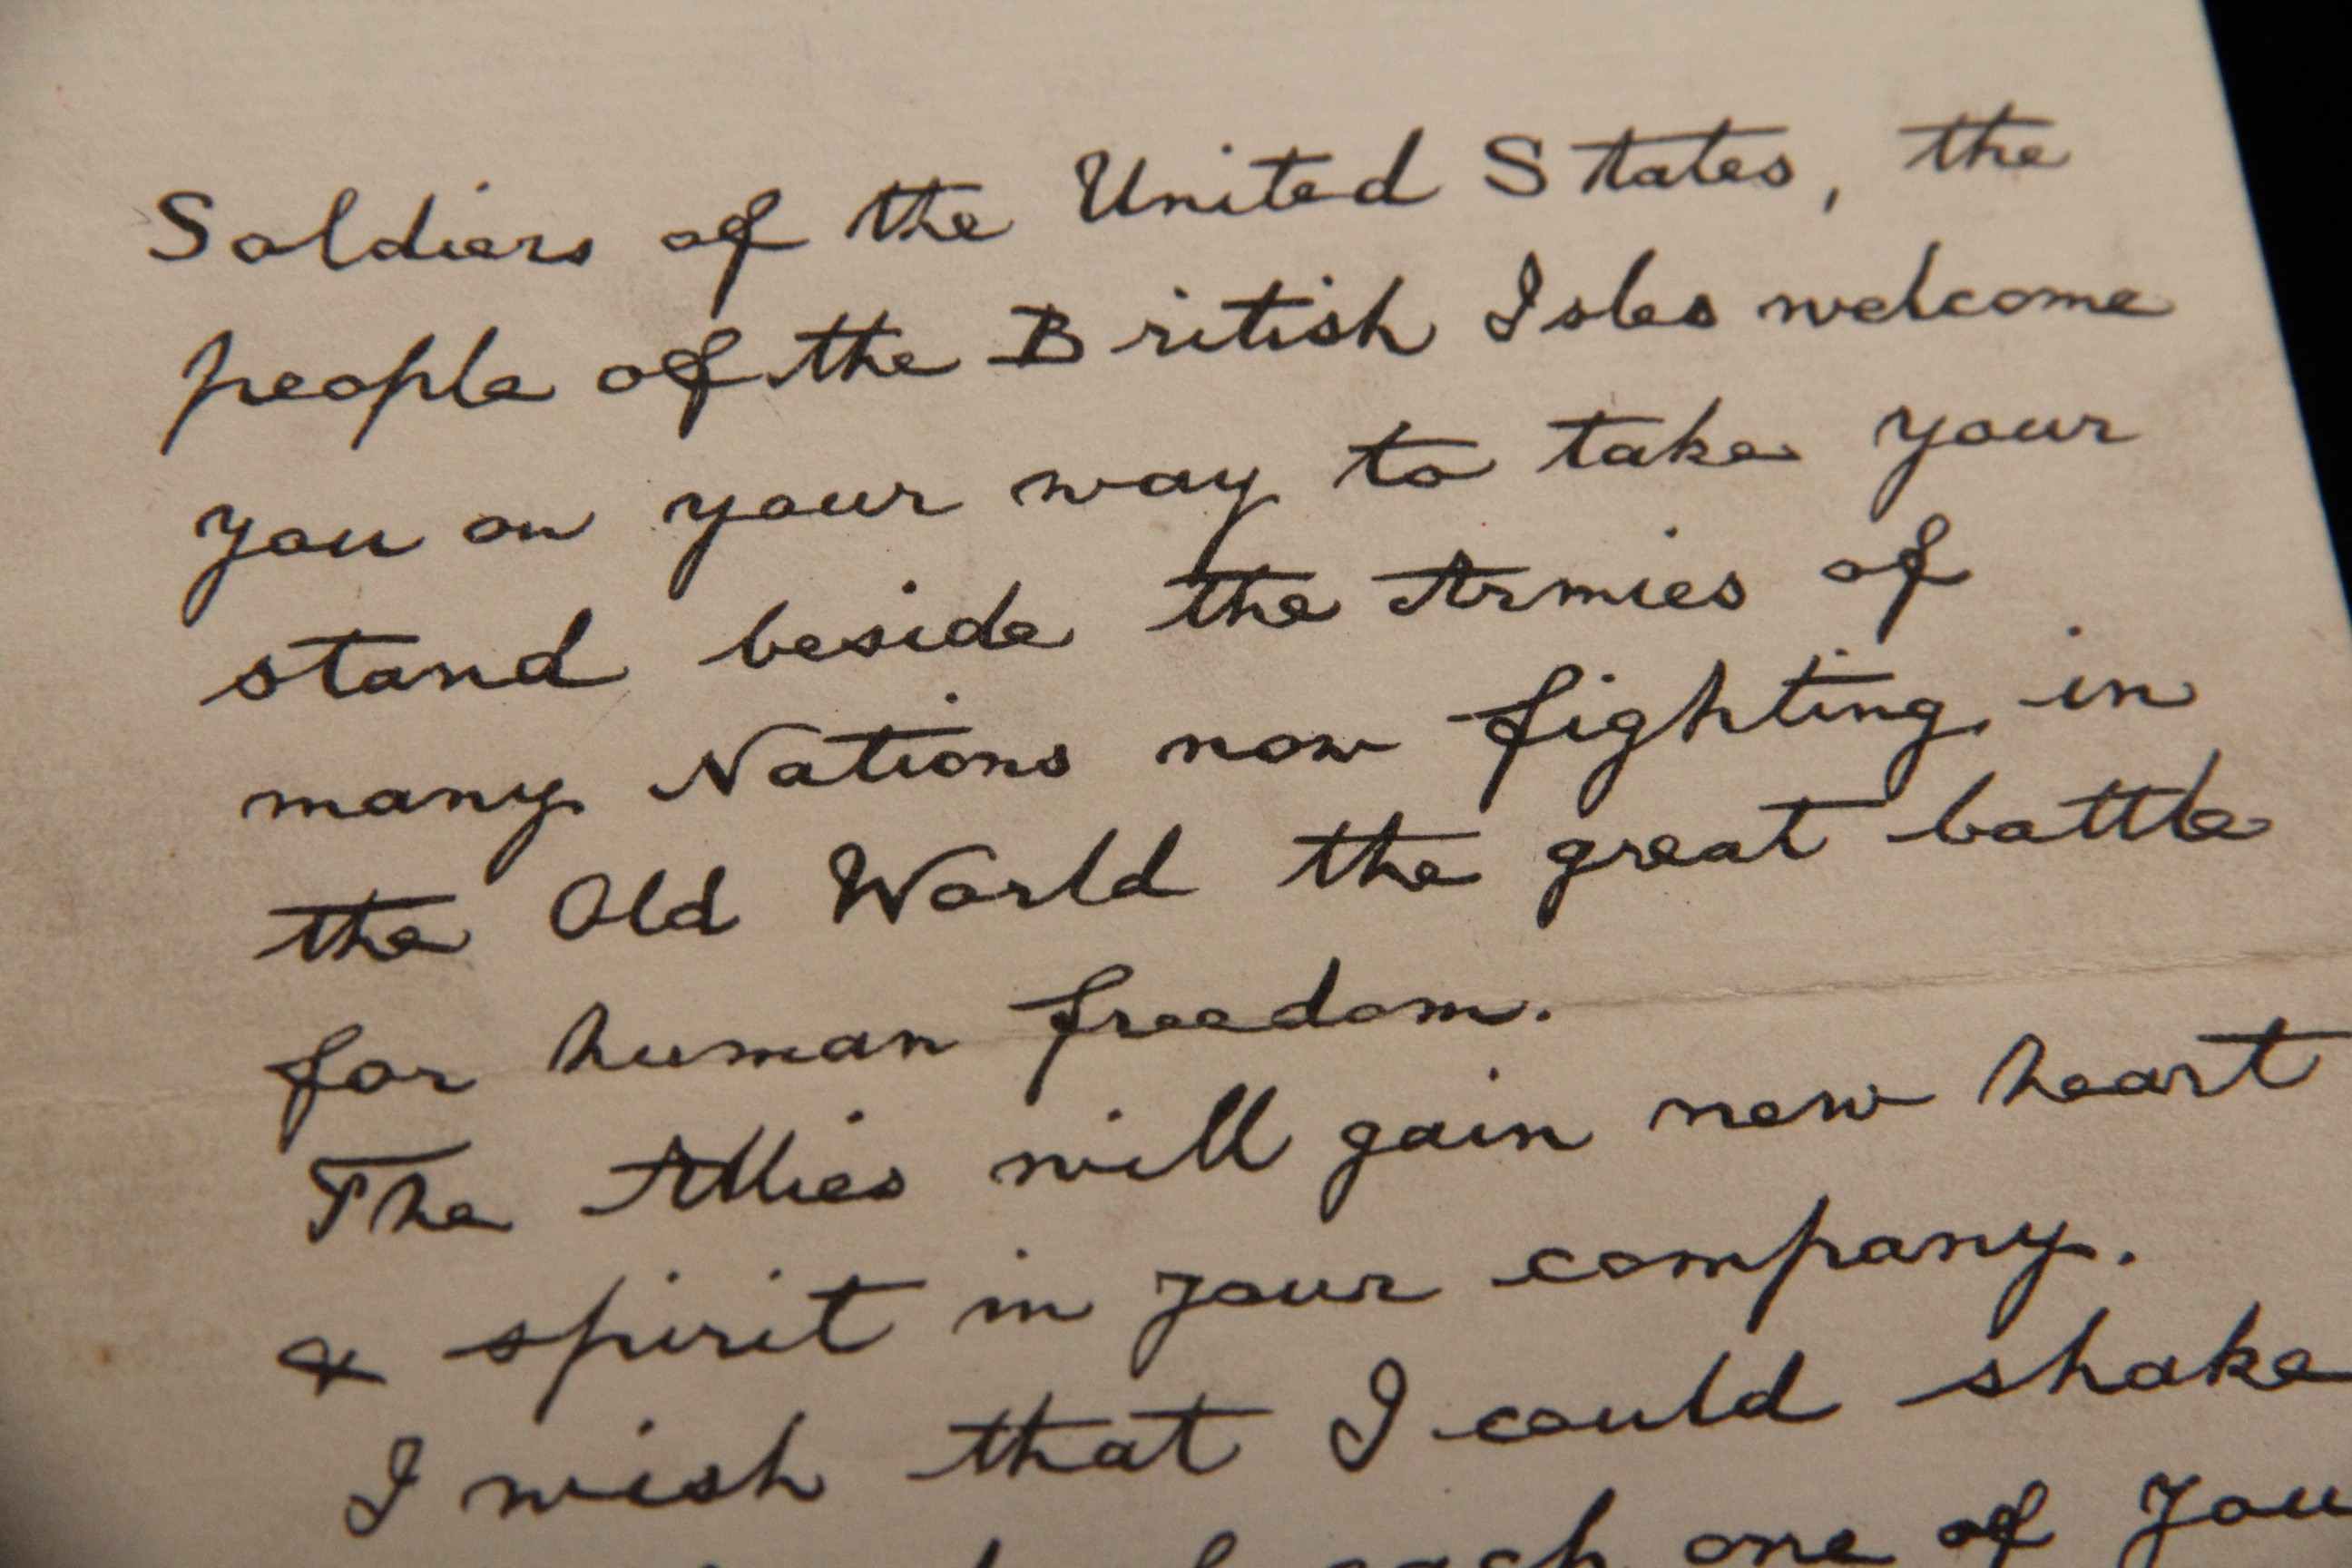 Soldiers of the United States, the
people of the British Isles welcome
you on your way to take your
stand beside the Armies of
many Nations now fighting in
the Old World the great battle
for human freedom.
The Allies will gain new heart
& spirit in your company.
I wish that I could shake
each one of you